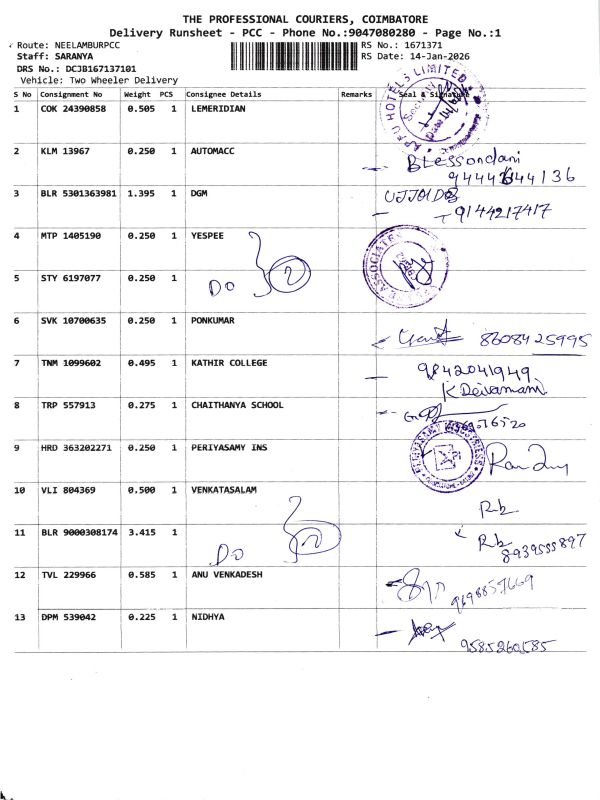 THE PROFESSIONAL COURIERS, COIMBATORE
Delivery Runsheet - PCC - Phone No.:9047080280 - Page No.:1
Route: NEELAMBURPCC RS No.: 1671371
Staff: SARANYA RS Date: 14-Jan-2026
DRS No.: DCJB167137101
Vehicle: Two Wheeler Delivery
S No Consignment No Weight PCS Consignee Details Remarks Seal & Signature
1 COK 24390858 0.505 1 LEMERIDIAN
HOTELS LIMITED
Security
Date
2 KLM 13967 0.250 1 AUTOMACC
3 BLR 5301363981 1.395 1 DGM
9144217417
4 MTP 1405190 0.250 1 YESPEE
ASSOCIATES
5 STY 6197077 0.250 1 Do 2
6 SVK 10700635 0.250 1 PONKUMAR 8608425995
7 TNM 1099602 0.495 1 KATHIR COLLEGE 9842041949
K Deivamani
8 TRP 557913 0.275 1 CHAITHANYA SCHOOL
9 HRD 363202271 0.250 1 PERIYASAMY INS
10 VLI 804369 0.500 1 VENKATASALAM Rb
11 BLR 9000308174 3.415 1 Do 2 Rb
8939555897
12 TVL 229966 0.585 1 ANU VENKADESH
13 DPM 539042 0.225 1 NIDHYA